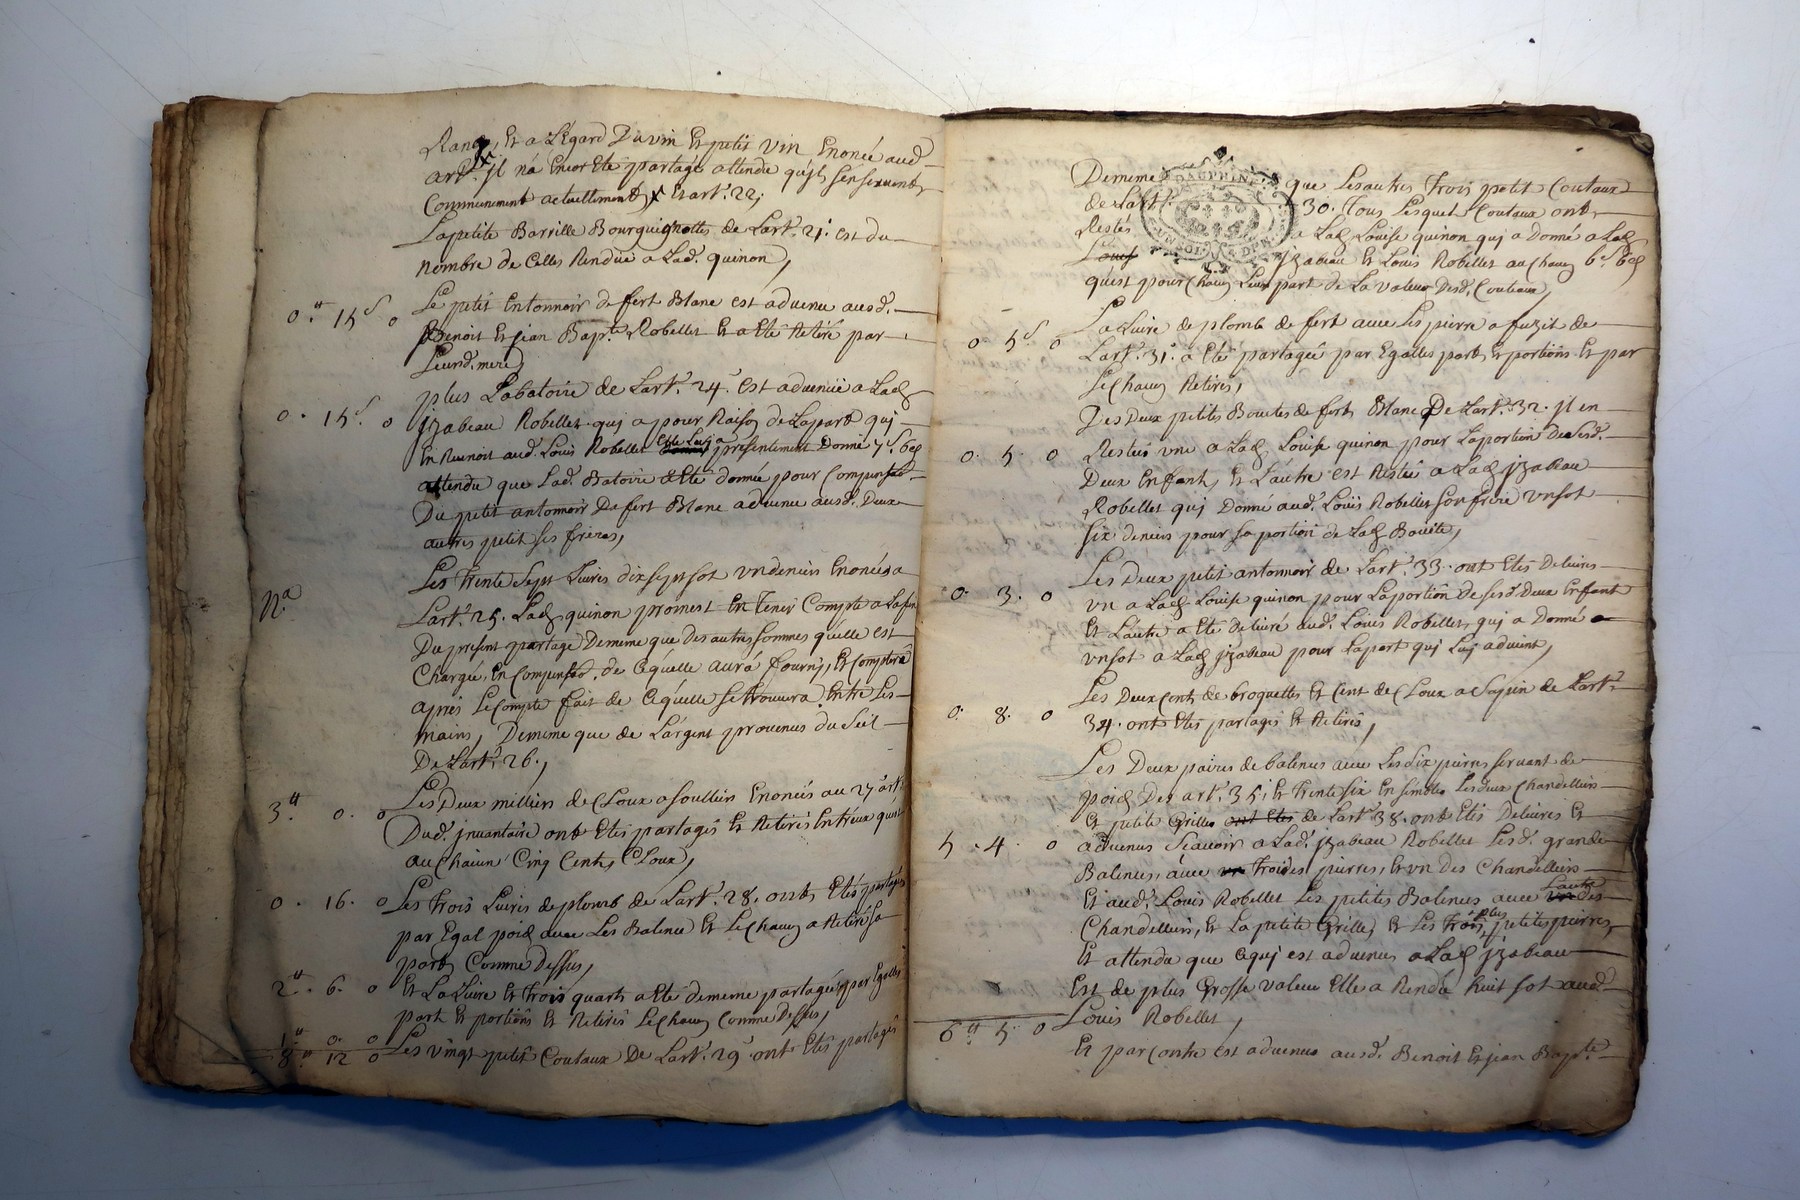 Rang, Et a Légard Du vin Et petit vin Enoncé aud.
art. jl na Encor Eté partagé attendu qu'jls sensservent
Communement actuellement, Et art. 22,
La petite Barrille Bourguignotte de Lart. 21. est du
nombre de Celles Rendüe a Lad. quinon,
0# 15s 0 Le petit Entonnoir de fert Blanc est advenu ausd.
Benoit Et jean Bapte. Robellet Et a Eté Retiré par
Leurd. mere,
plus Labatoire de Lart. 24. est advenüe a Lad.
0. 15s. 0 jzabeau Robellet quj a pour Raison de Lapart quj
En Revenoit aud. Louis Robellet Elle Luy a presentement Donné 7s. 6d
attendu que Lad. Batoire a Eté donnée pour Compensaon.
Du petit antonnoir De fert Blanc advenu ausd. Deux
autres petit ses freres,
Na. Les trente Sept Livres dix sept sot un deniers Enoncés a
Lart. 25. Lad. quinon promest En Tenir Compte a Lafin
Du present partage Dememe que des autres sommes qu'elle est
Chargée, En Compensaon. de Cequ'elle aurá fournj, Et Comptera
aprés Le Compte fait de Cequ'elle se trouvera Entre Les
mains, Demême que de Lárgent provenus du Seil
De Lart. 26.,
3#. 0. 0 Les Deux milliers de Cloux a soulliers Enoncés au 27 art.
Dud. jnvantaire ont Etés partagés Et Retirés Entreux quest
au Chaicun Cinq Cents Cloux,
0. 16. 0 Les trois Livres de plomb de Lart. 28. onts Etés partagés
par Egal poid avec Les Balence Et Le Chacun a Retiré sa
part Comme Dessus,
2#. 6. 0 Et La Livre Et trois quarts a Eté dememe partagée par Egalles
part Et portions Et Retirés Le Chacun Comme Dessus,
1# 0. 0 Les vingt petits Coutaux De Lart. 29. ont Etés partagés
8#. 12 0
Dememe que Les autres trois petit Coutaux
de Lart. 30. Tous Lesquels Coutaux onts
Restés a Lad. Louise quinon quj a Donné a Lad.
jzabeau Et Louis Robellet au Chacun 6s. 6d
qu'est pour Chacun Leur part de La valeur Desd. Couteaux,
DAUPHINE
0 5s 0 La Livre de plomb de fert avec Les pierre a fuzit de
Lart. 31. a Eté partagée par Egalles parts Et portions Et par
Le Chacun Retirés,
Les Deux petites Bouetes de fert Blanc De Lart. 32. jl en
0. 5. 0 Restée une a Lad. Louise quinon pour Laportion De sesd.
Deux Enfants Et Láutre est Restée a Lad. jzabeau
Robellet quj Donné aud. Loüis Robellet son frere un sot
six deniers pour sa portion de Lad. Bouëte,
Les Deux petit antonnoir de Lart. 33. ont Etés Delivrés
0. 3. 0 un a Lad. Louise quinon pour Laportion de sesd. Deux Enfant
Et Láutre a Eté delivré aud. Loüis Robellet, quj a Donné
un sot a Lad. jzabeau pour Lapart quj Luj advient,
Les Deux Cents de broquettes Et Cent de Cloux a Sapin de Lart.
0. 8. 0 34. onts Etés partagés Et Retirés,
Les Deux paires de balences avec Les six pierres servant de
poid Des art. 35, Et trente six Ensemble Les deux Chandelliers
Et petite Grille ont Etés de Lart. 38. ont Etés Delivrés Et
5. 4. 0 advenus Scavoir a Lad. jzabeau Robellet Lesd. grandes
Balences, avec trois des pierres, Et un des Chandelliers
Et aud. Louis Robellet Les petites Balences avec Lautre des
Chandelliers, Et La petite Grille, Et Les trois plus petites pierres,
Et attendu que Cequj est advenus a Lad. jzabeau
Est de plus Grosse valeur Elle a Rendu huit sot aud.
6# 5. 0 Louis Robellet,
Et par Contre est advenu ausd. Benoit Et jean Bapte.